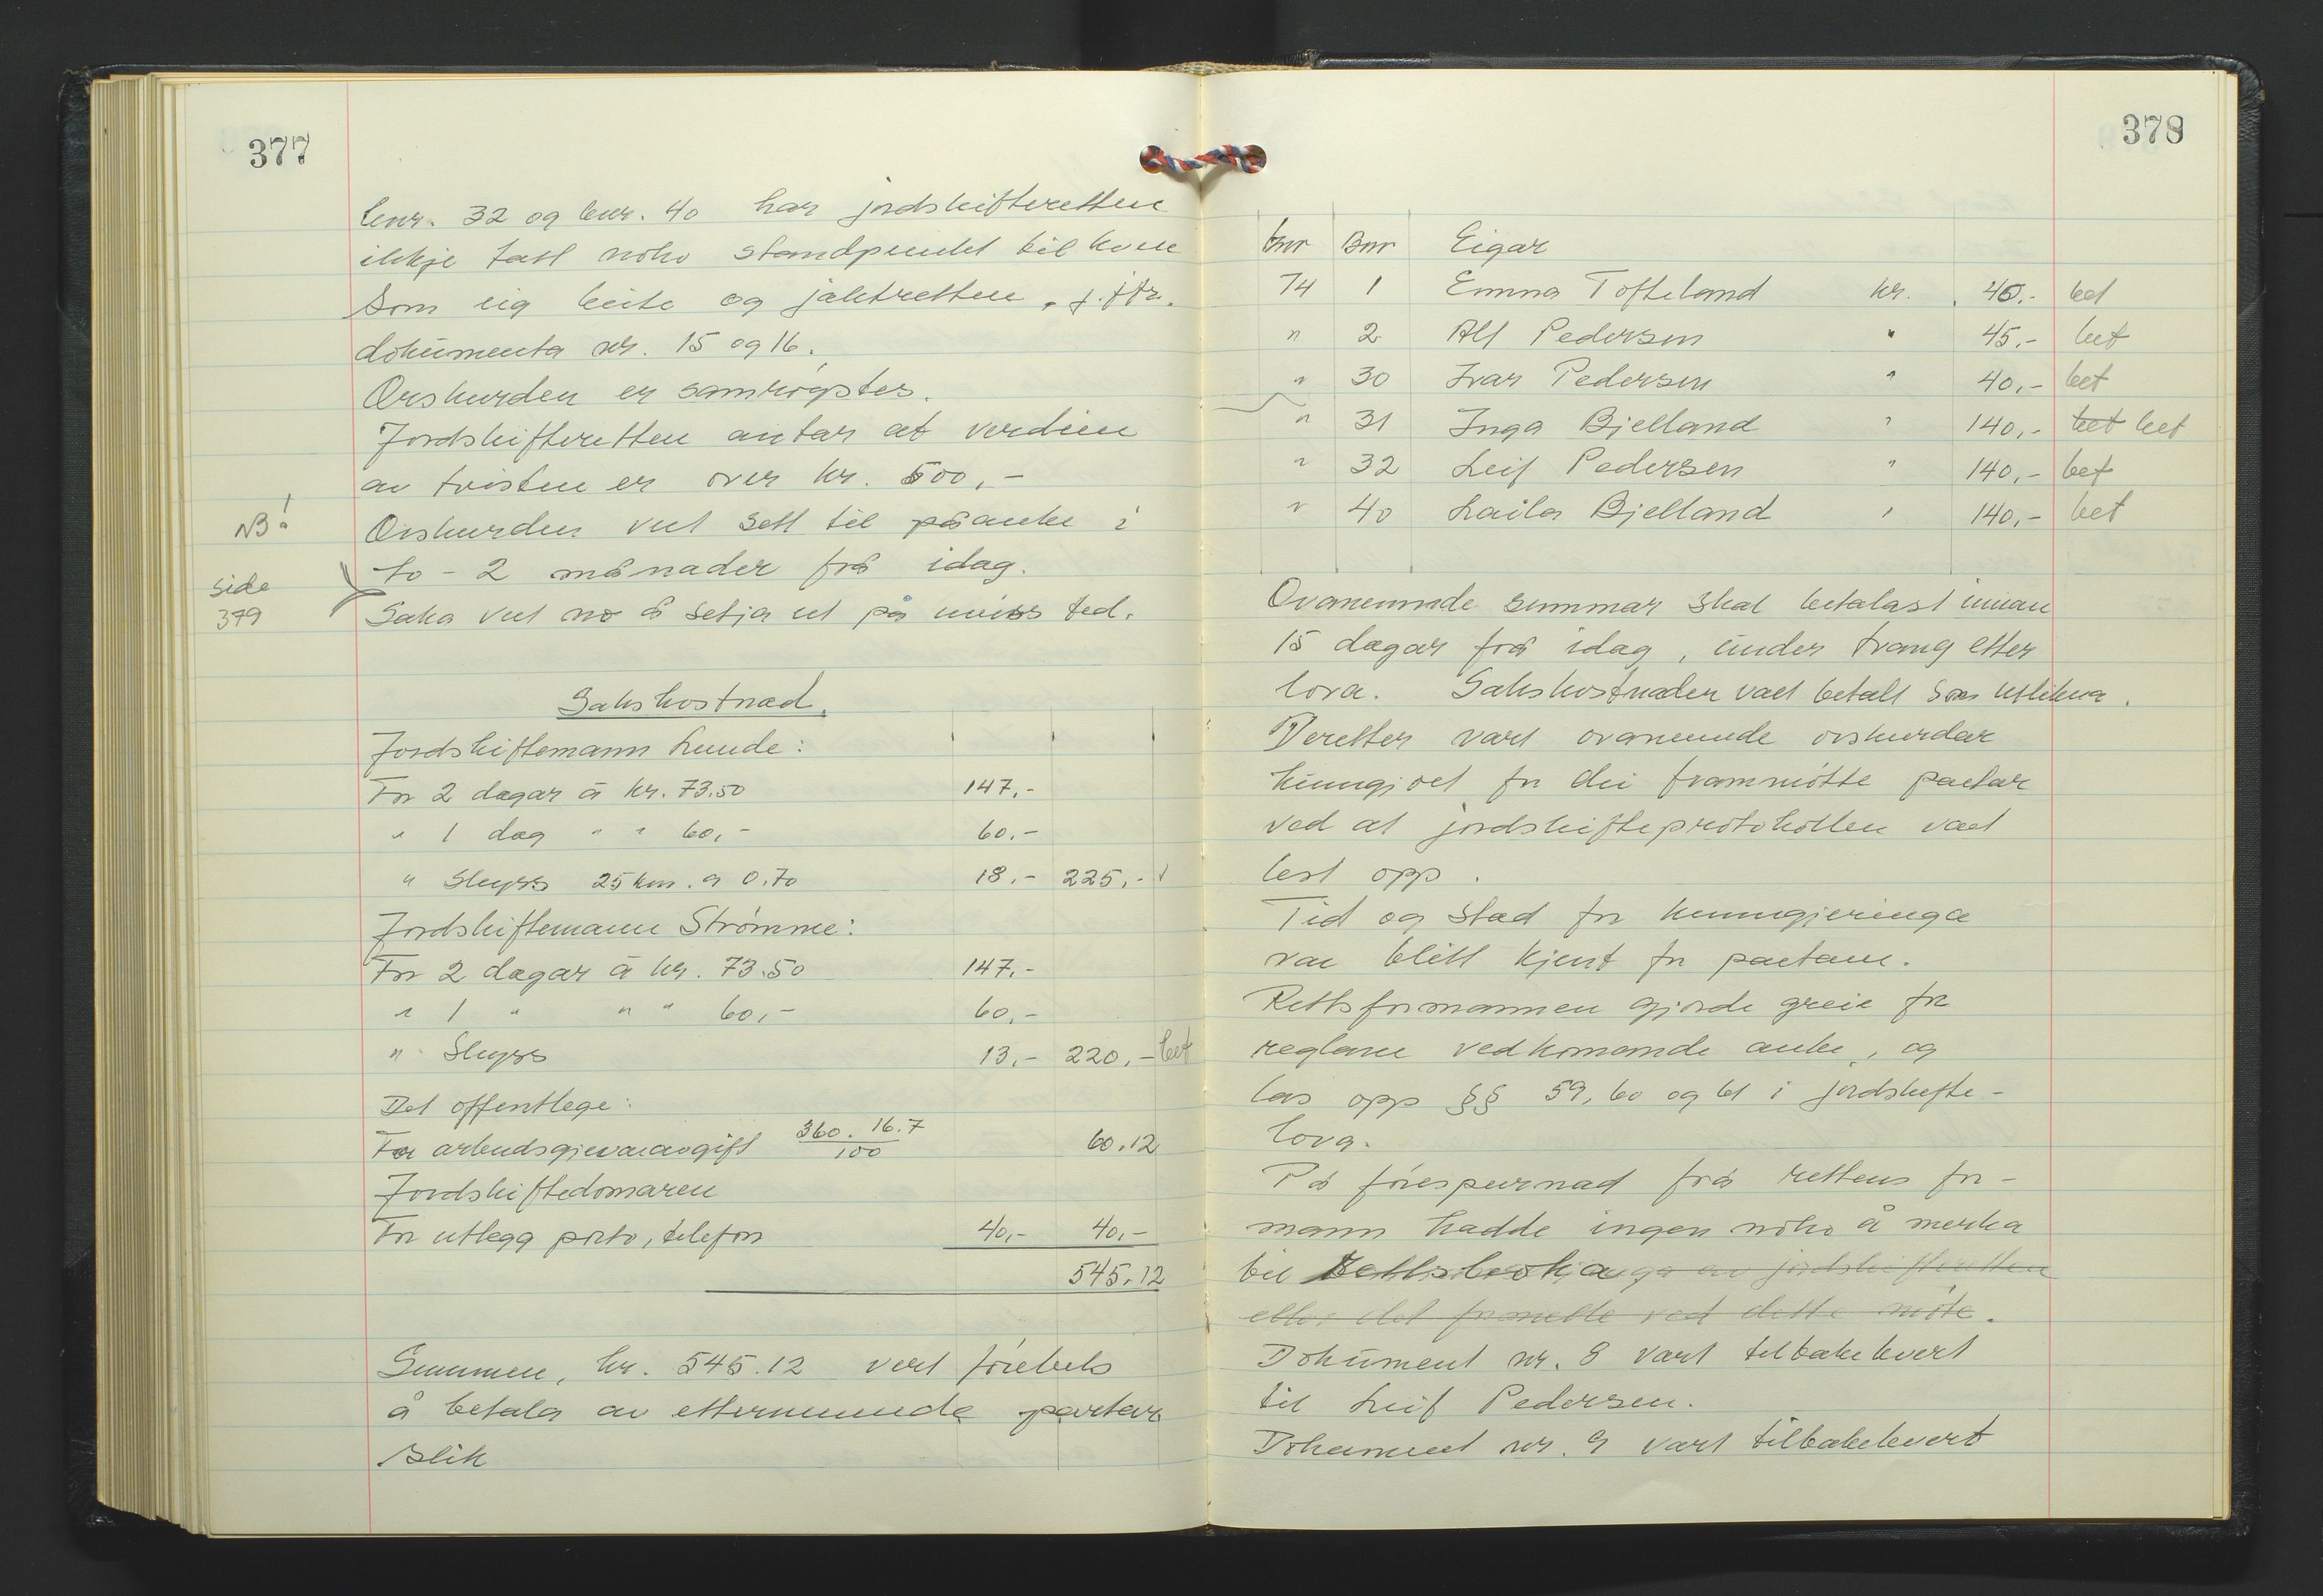 377
bnr. 32 og bnr. 40 har jordskifteretten
ikkje tatt noko standpunkt til kven
som eig beite og jaktretten, j.fr.
dokumenta nr. 15 og 16.
Orskurden er samrøystes.
Jordskifteretten antar at verdien
av tvisten er over kr. 500,-
NB!
Orskurden vert sett til påanke i
to - 2 månader frå idag.
side
379
Saka vert no å setja ut på uviss tid.
Sakskostnad.
Jordskiftemann Lunde:
For 2 dagar à kr. 73.50 147,-
" 1 dag " " 60,- 60,-
" Skyss 25 km. a 0.70 18,- 225,-
Jordskiftemann Strømme:
For 2 dagar à kr. 73.50 147,-
" 1 " " " 60,- 60,-
" Skyss 13,- 220,- bet
Det offentlege:
For arbeidsgjevaravgift 360. 16.7 60,12
100
Jordskiftedomaren
For utlegg porto, telefon 40,- 40,-
545,12
Summen, kr. 545.12 vert førebels
å betala av etternemnde partar
slik
378
Gnr Bnr Eigar
74 1 Emma Tofteland kr. 40,- bet
" 2 Alf Pedersen " 45,- bet
" 30 Ivar Pedersen " 40,- bet
" 31 Inga Bjelland " 140,- bet bet
" 32 Leif Pedersen " 140,- bet
" 40 Laila Bjelland " 140,- bet
Ovanemnde summar skal betalast innan
15 dagar frå idag, under tvang etter
lova. Sakskostnaden vart betalt som utlikna.
Deretter vart ovanemnde orskurdar
kunngjort for dei frammøtte partar
ved at jordskifteprotokollen vart
lest opp.
Tid og stad for kunngjeringa
var blitt kjent for partane.
Rettsformannen gjorde greie for
reglane vedkomande anke, og
las opp §§ 59, 60 og 61 i jordskifte-
lova.
På førespurnad frå rettens for-
mann hadde ingen noko å merka
til Rettsboka av jordskifteretten
eller det framsette ved dette møte.
Dokument nr. 8 vart tilbakelevert
til Leif Pedersen.
Dokument nr. 9 vart tilbakelevert